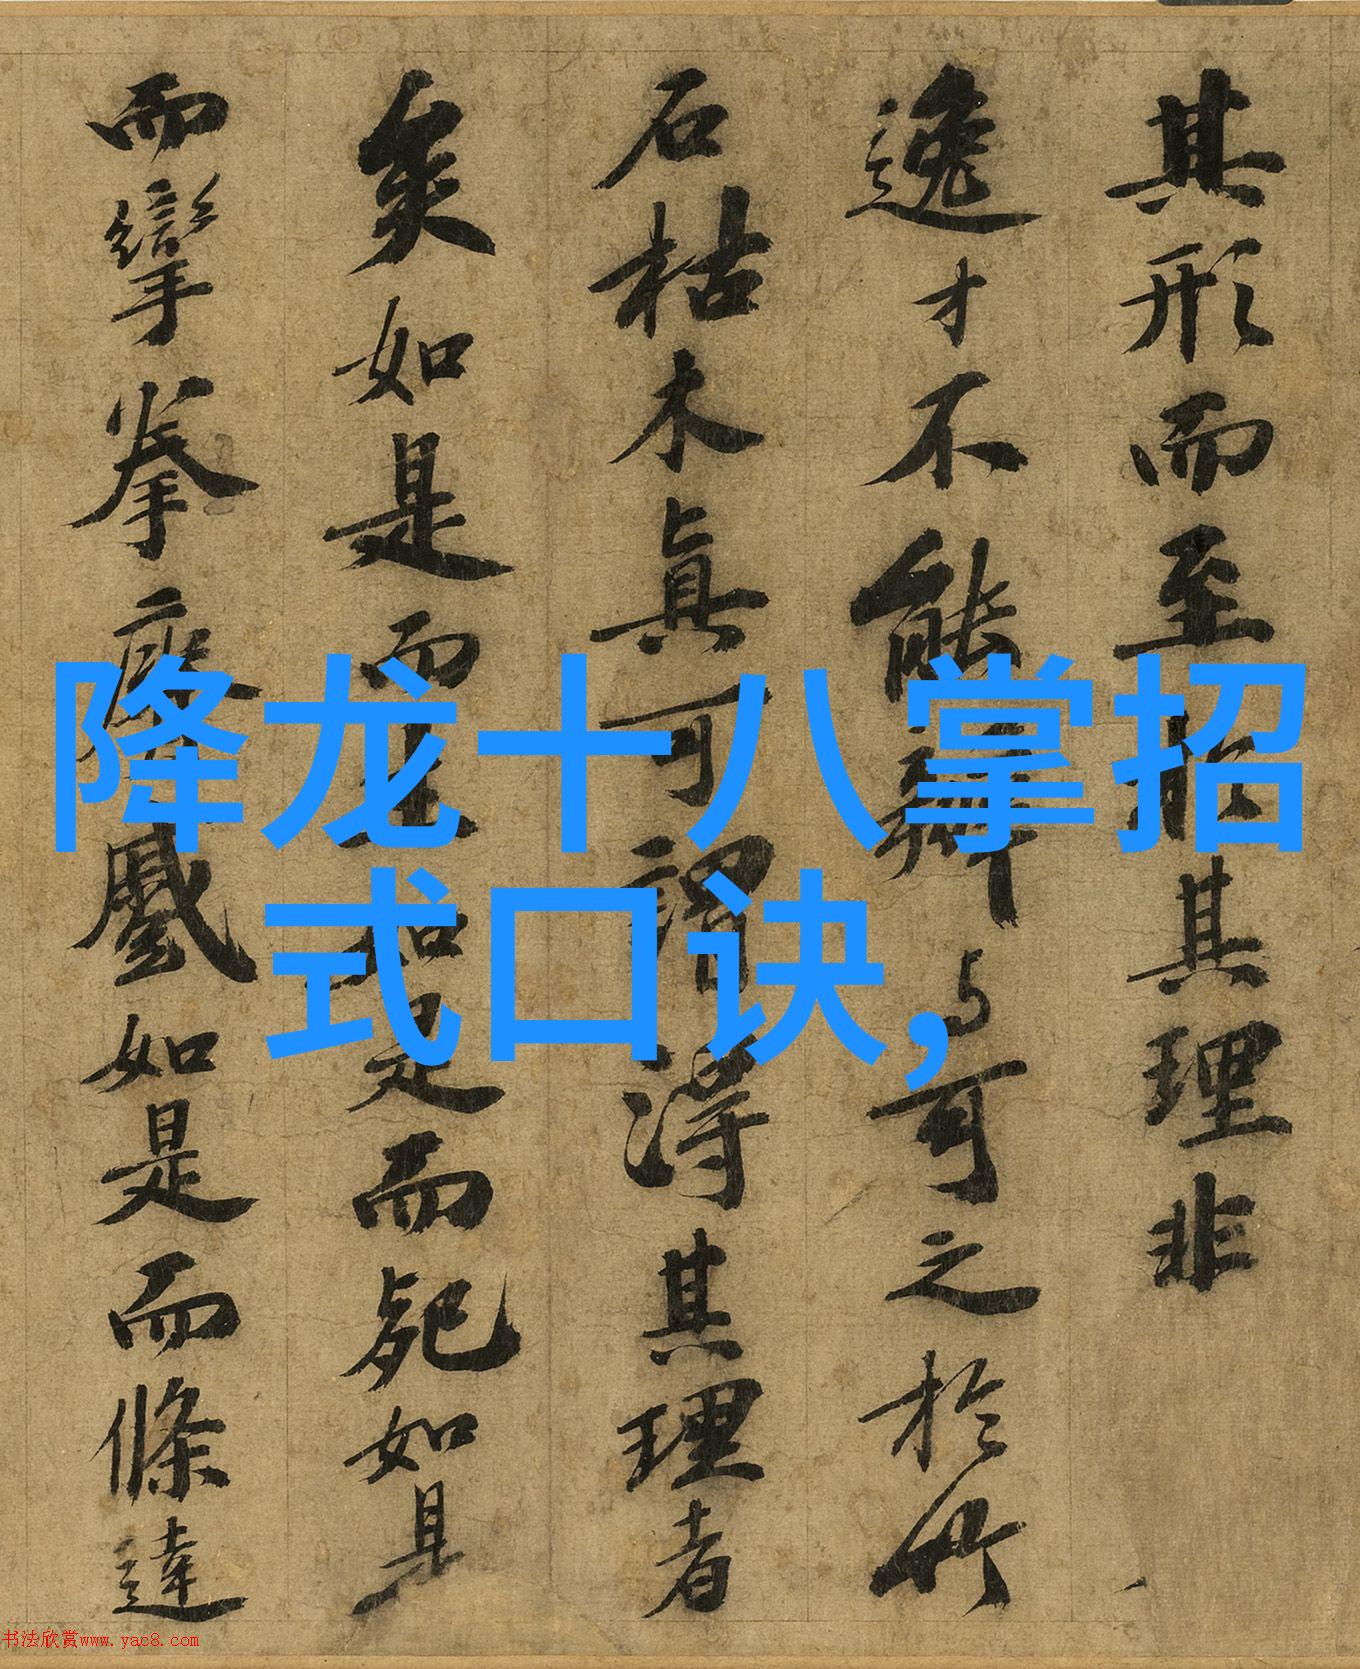 其形而至於其理非
逸才不能辨与可之於竹
石枯木真可謂得其理者
矣如是而生如是而死如是
而攣拳瘠蹙如是而條達
降龙十八掌招
式口诀,
书法欣赏www.yac8.com